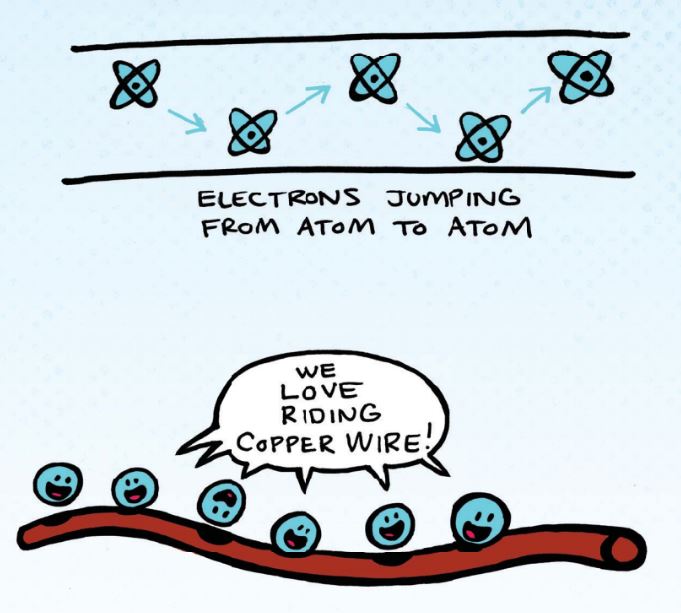 ELECTRONS JUMPING
FROM ATOM TO ATOM
WE
LOVE
RIDING
COPPER WIRE!